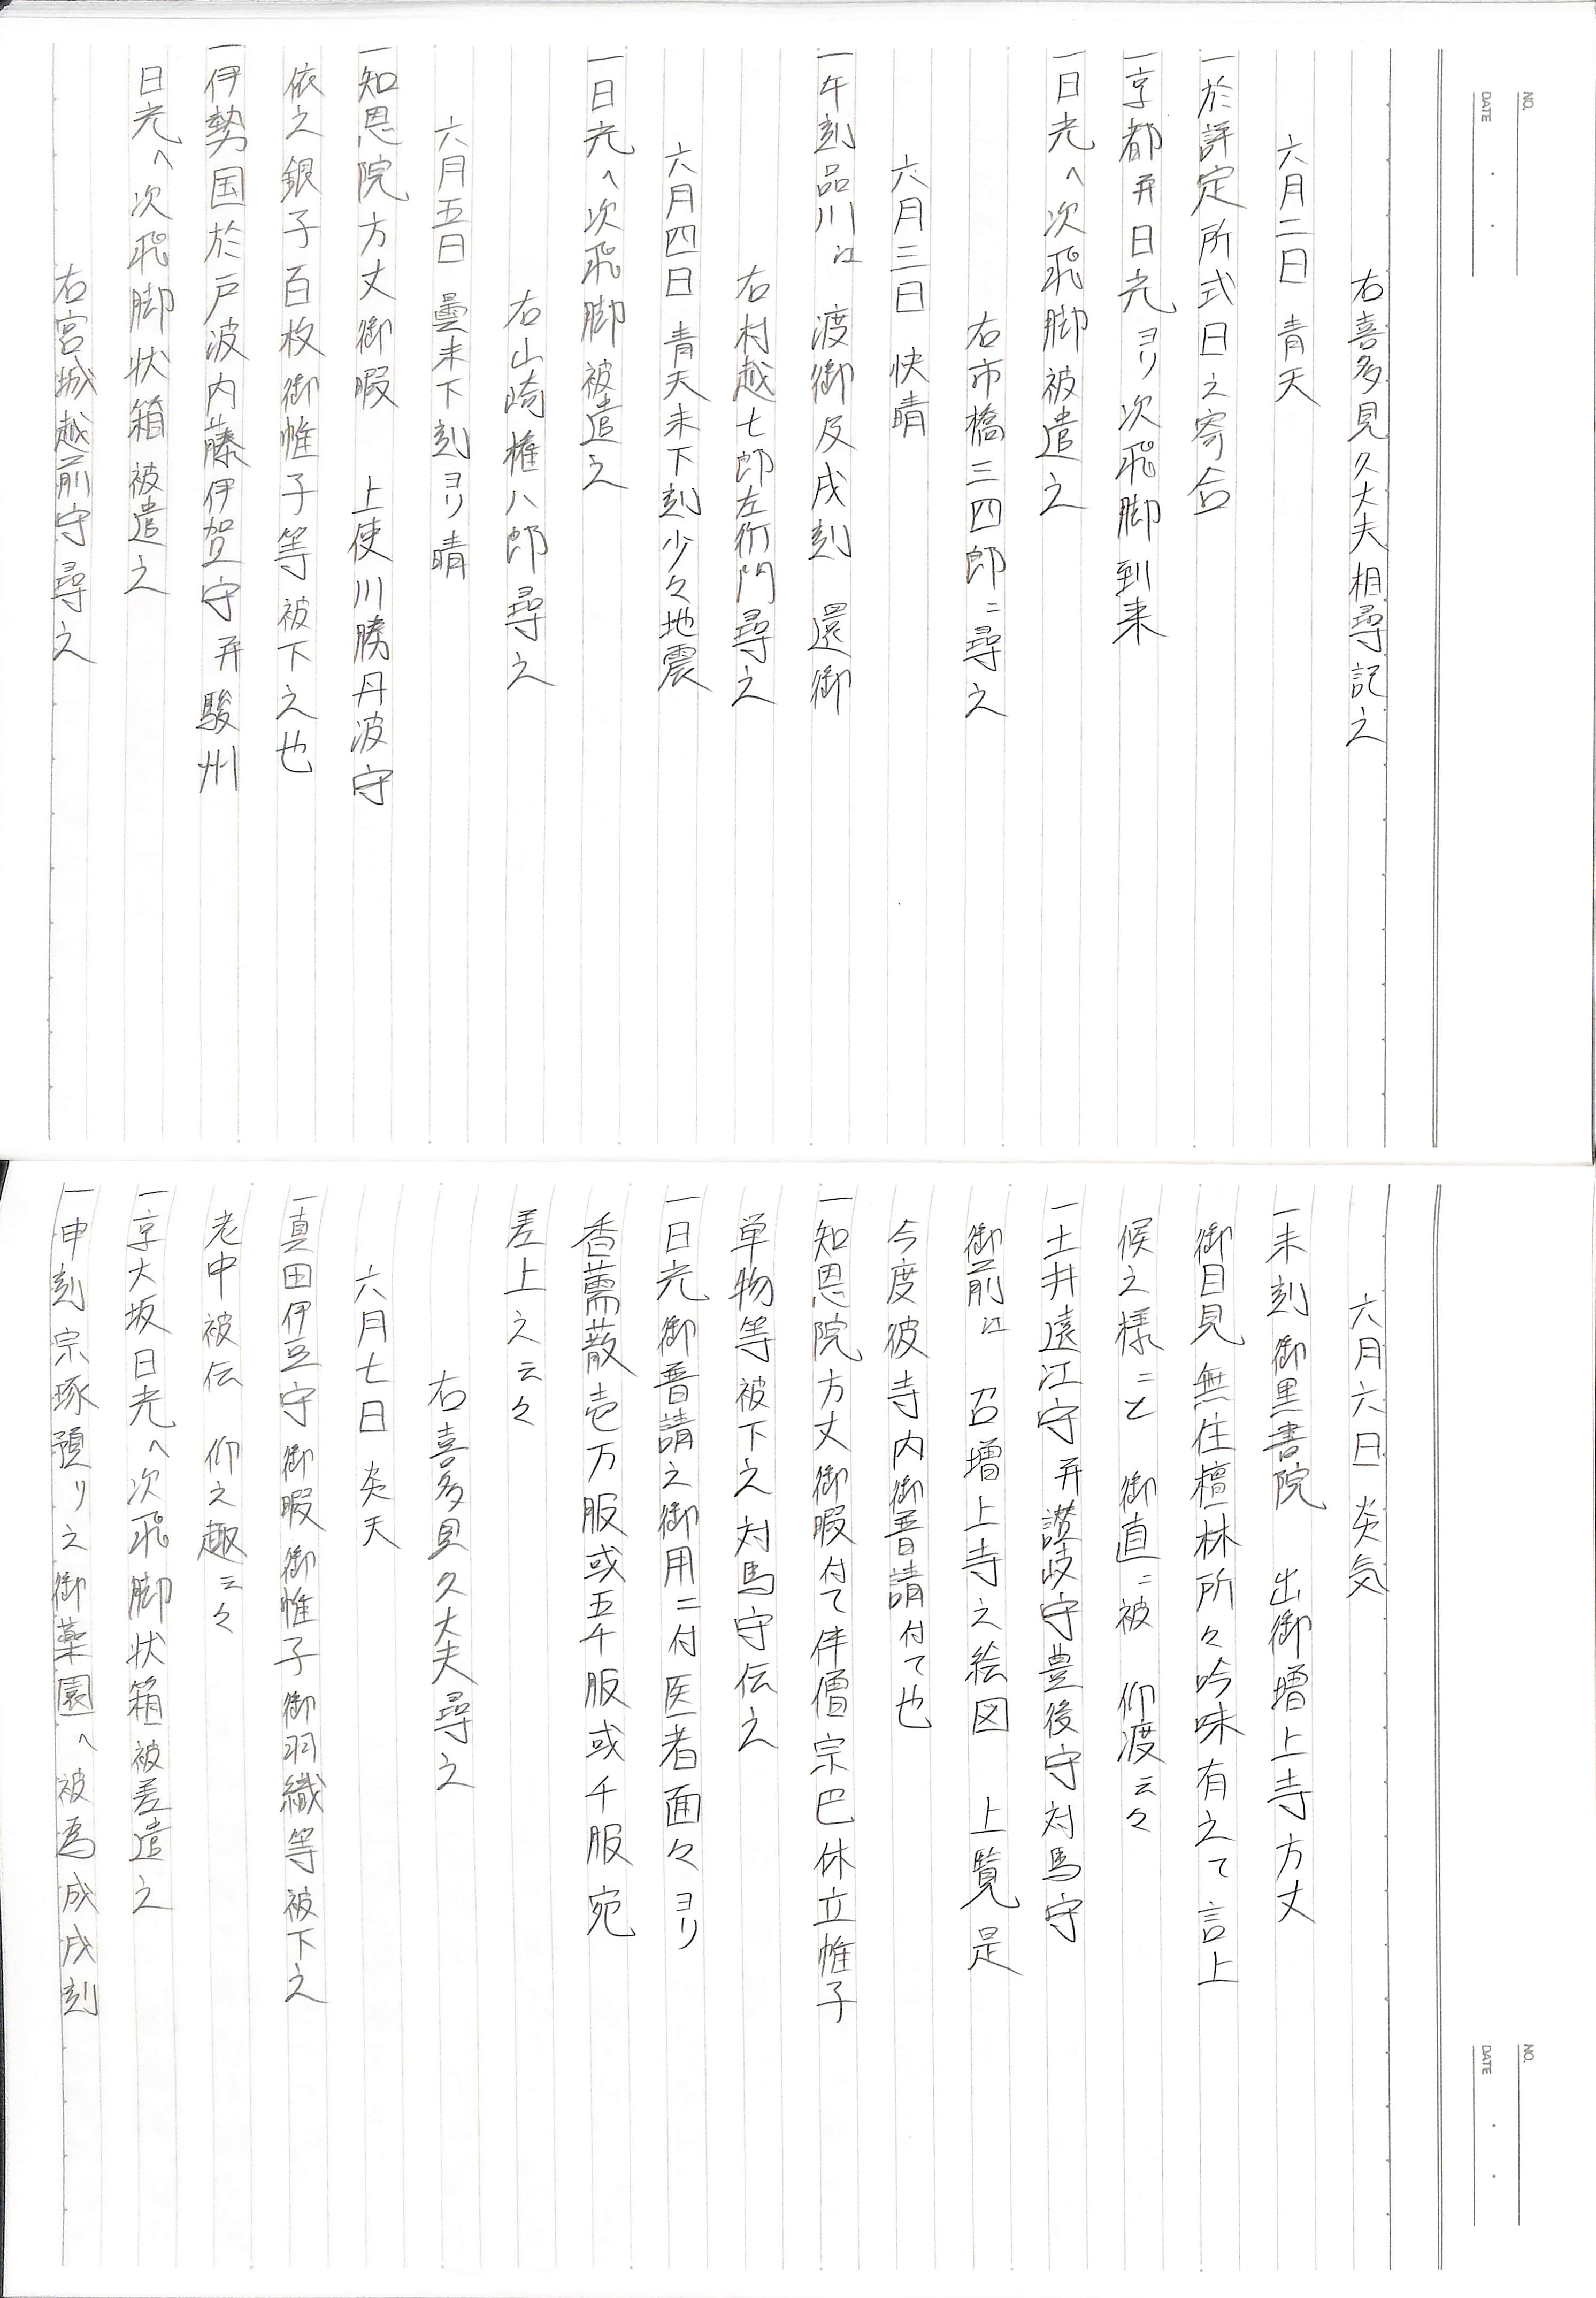 NO.
DATE
右喜多見久大夫相尋記之
六月二日 青天
一於評定所式日之寄合
一亰都并日光ヨリ次飛脚到来
一日光へ次飛脚被遣之
右市橋三四郎ニ尋之
六月三日 快晴
一午刻品川江 渡御及戌刻 還御
右村越七郎左衛門尋之
六月四日 青天未下刻少々地震
一日光へ次飛脚被遣之
右山崎権八郎尋之
六月五日 曇未下刻ヨリ晴
一知恩院方丈御暇 上使川勝丹波守
依之銀子百枚御帷子等被下之也
一伊勢国於戸波内藤伊賀守并駿州
日光へ次飛脚状箱被遣之
右宮城越前守尋之
NO.
DATE
六月六日 炎気
一未刻御黒書院 出御増上寺方丈
御目見無住檀林所々吟味有之て言上
候之様ニと 御直ニ被 仰渡云々
一土井遠江守并讃岐守豊後守対馬守
御前江 召増上寺之絵図 上覧是
今度彼寺内御普請付て也
一知恩院方丈御暇付て伴僧宗巴休立帷子
単物等被下之対馬守伝之
一日光御普請之御用ニ付医者面々ヨリ
香薷散壱万服或五千服或千服宛
差上之云々
右喜多見久大夫尋之
六月七日 炎天
一真田伊豆守御暇御帷子御羽織等被下之
老中被伝 仰之趣云々
一亰大坂日光へ次飛脚状箱被差遣之
一申刻宗琢預リ之御薬園へ被為成戌刻